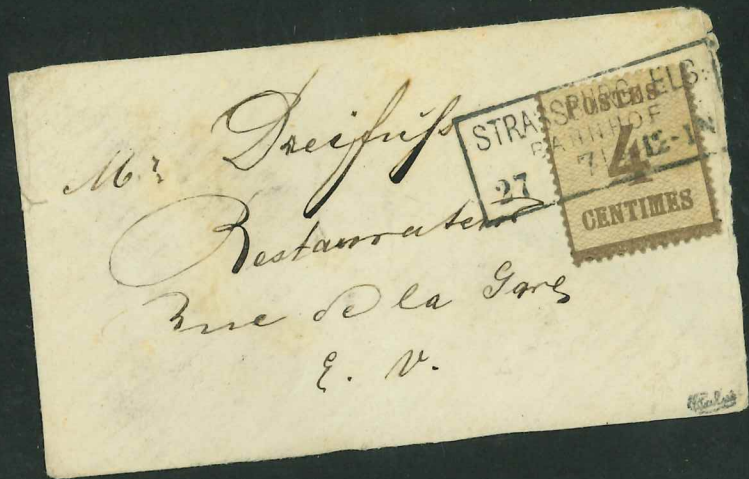 Mr Dreifuss
Restaurateur
Rue de la Gare
E. V.
STRASSBURG ELS.
BAHNHOF
27 71 12-1
POSTES
4
CENTIMES